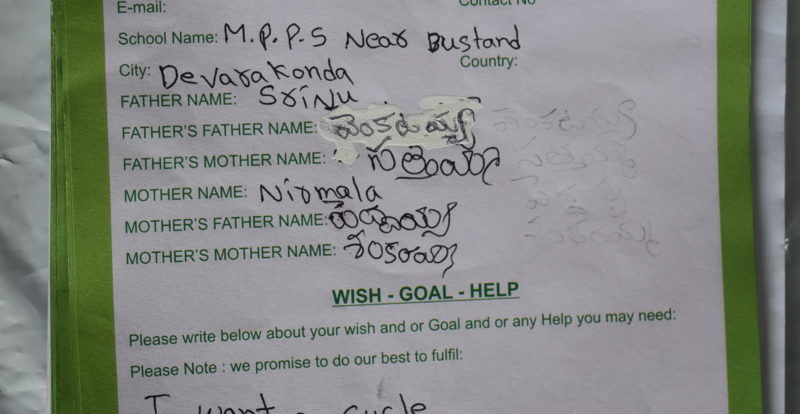 E-mail: Contact No
School Name: M.P.P.S Near Bustand
City: Devarakonda Country:
FATHER NAME: Srinu
FATHER'S FATHER NAME: వెంకటయ్య
FATHER'S MOTHER NAME: సత్తెమ్మ
MOTHER NAME: Nirmala
MOTHER'S FATHER NAME:
MOTHER'S MOTHER NAME: శంకరమ్మ
WISH - GOAL - HELP
Please write below about your wish and or Goal and or any Help you may need:
Please Note : we promise to do our best to fulfil:
I want a cycle